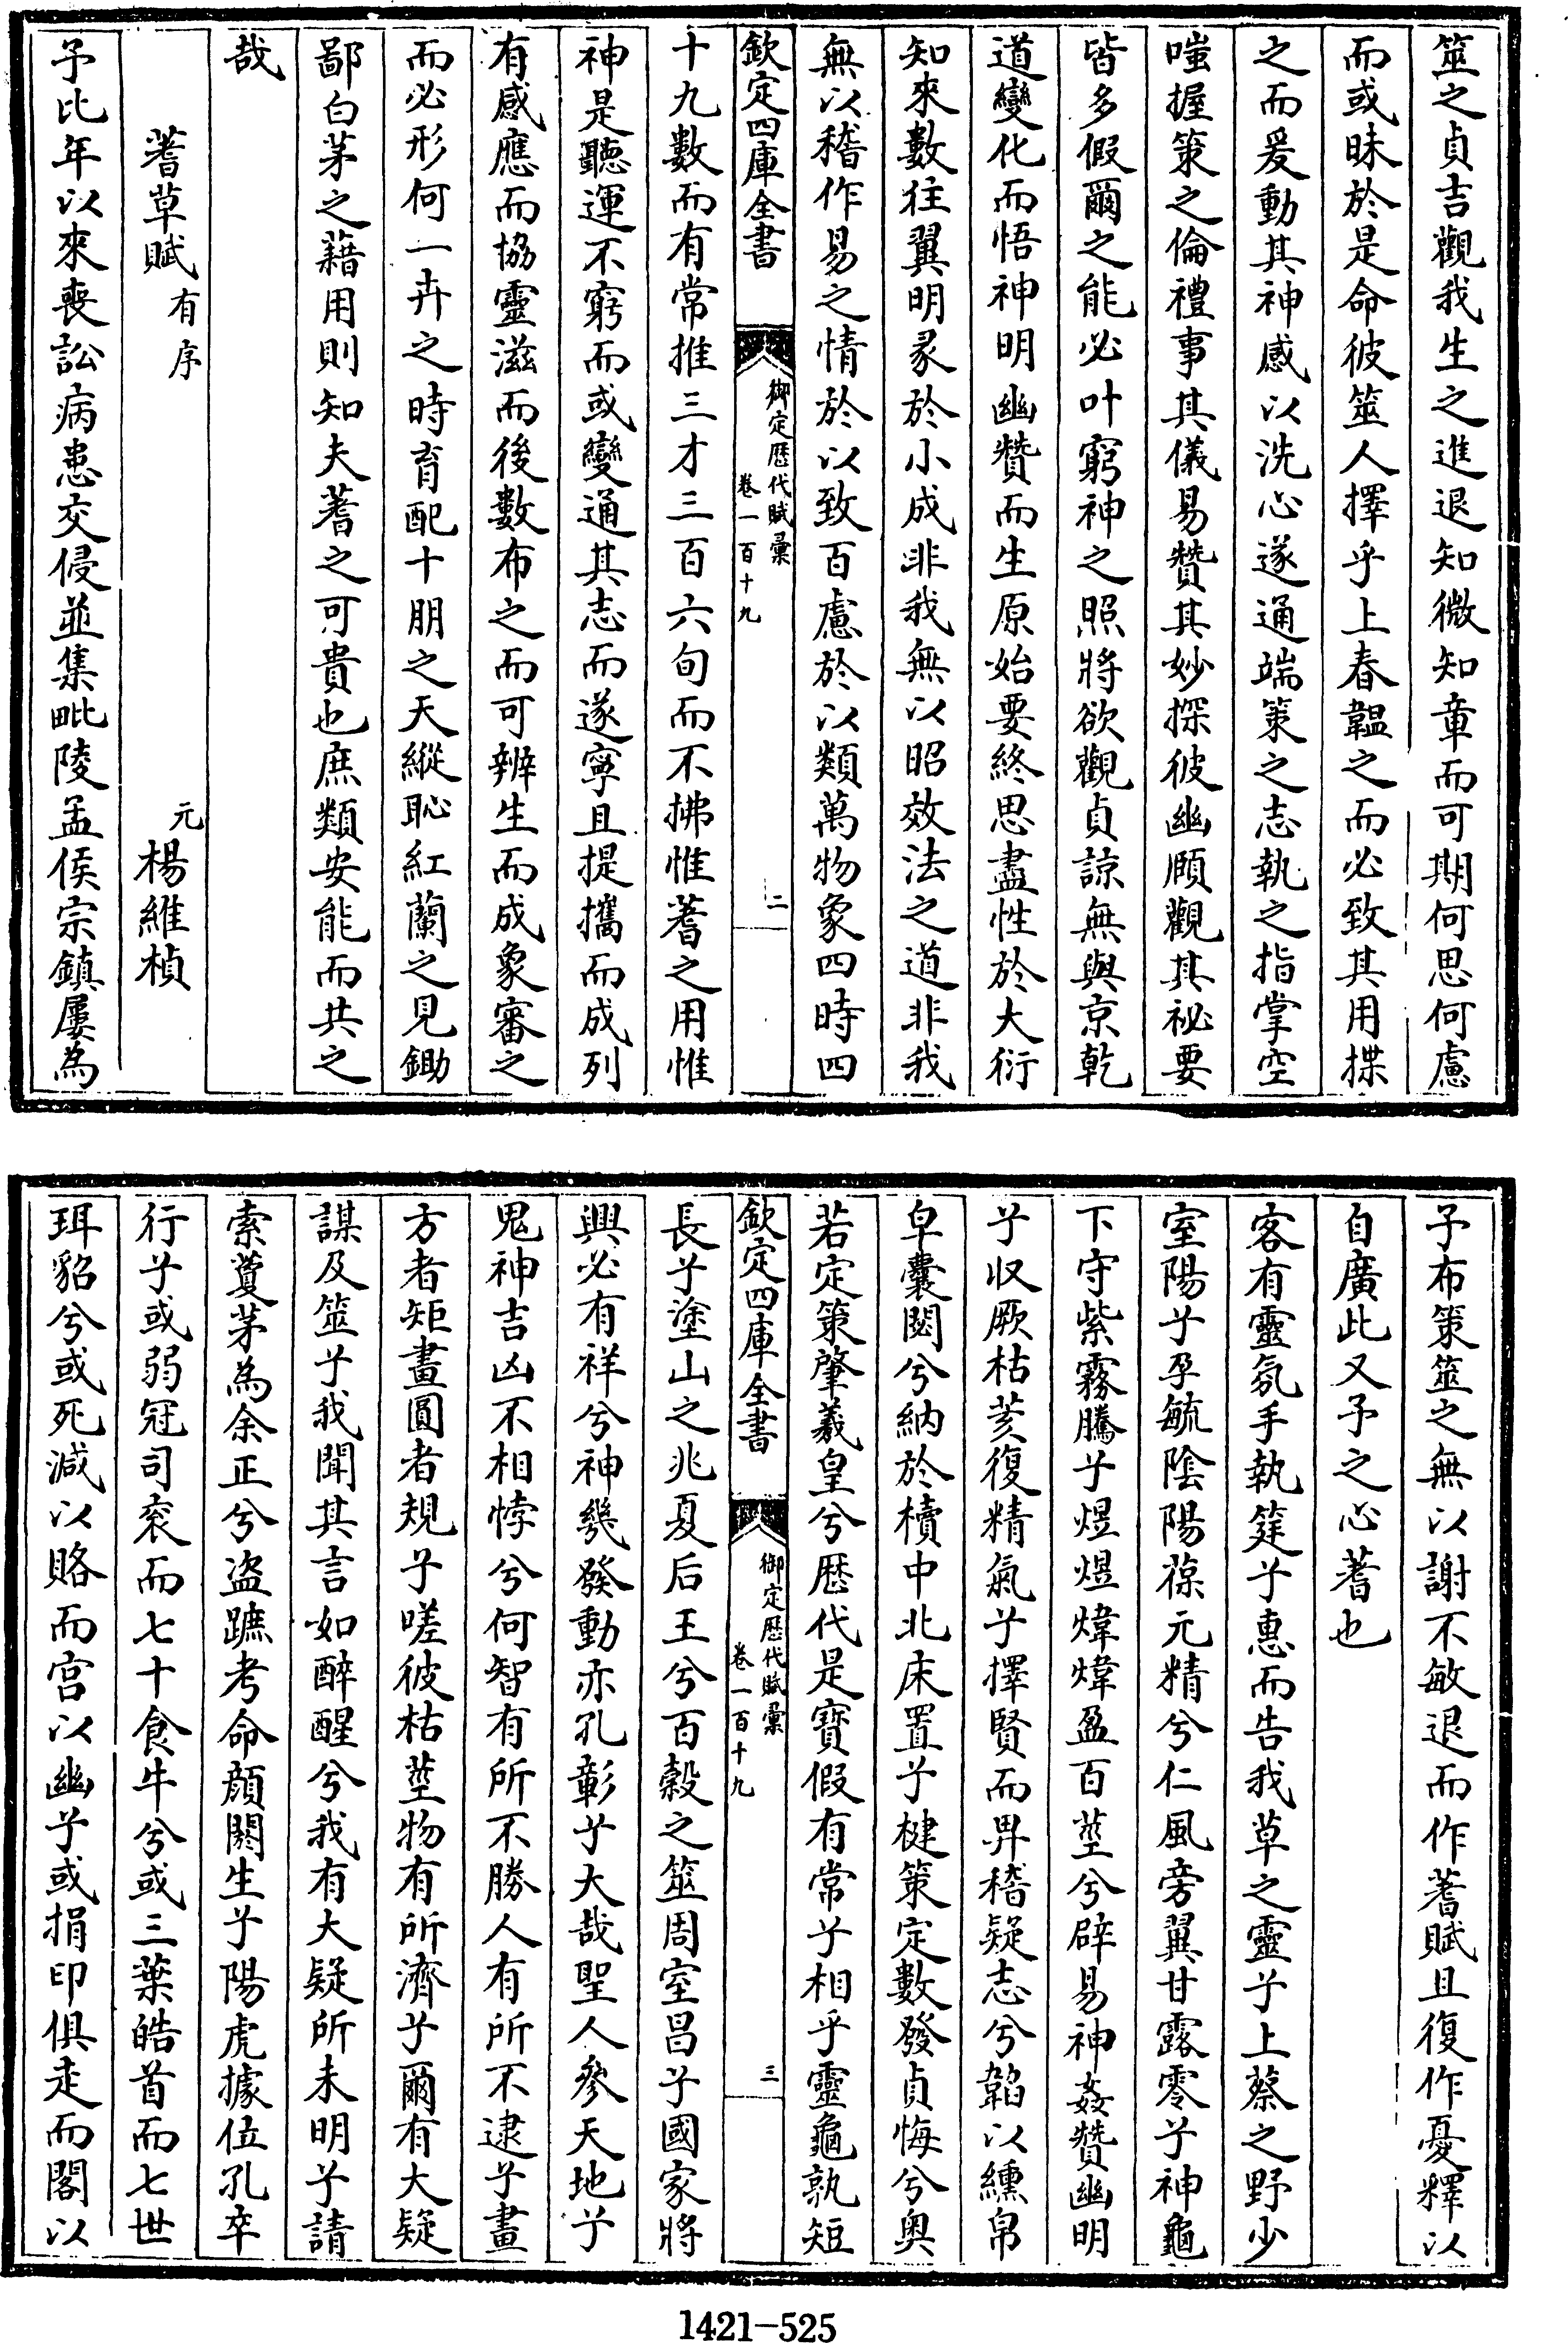 筮之貞吉觀我生之進退知微知章而可期何思何慮
而或昧於是命彼筮人擇乎上春韞之而必致其用揲
之而爰動其神感以洗心遂通端策之志執之指掌空
嗤握策之倫禮事其儀易贊其妙探彼幽頤觀其祕要
皆多假爾之能必叶窮神之照將欲觀貞諒無與京乾
道變化而悟神明幽贊而生原始要終思盡性於大衍
知來數往翼明彖於小成非我無以昭效法之道非我
無以稽作易之情於以致百慮於以類萬物象四時四
欽定四庫全書
御定歴代賦彙
卷一百十九
二
十九數而有常推三才三百六旬而不拂惟蓍之用惟
神是聽運不窮而或變通其志而遂寧且提攜而成列
有感應而協靈滋而後數布之而可辨生而成象審之
而必形何一卉之時育配十朋之天縱恥紅蘭之見鋤
鄙白茅之藉用則知夫蓍之可貴也庶類安能而共之
哉
蓍草賦有序
元楊維楨
予比年以來喪訟病患交侵並集毗陵孟侯宗鎮屢為
予布策筮之無以謝不敏退而作蓍賦且復作憂釋以
自廣此又予之心蓍也
客有靈氛手執筳兮惠而告我草之靈兮上蔡之野少
室陽兮孕毓陰陽葆元精兮仁風旁翼甘露零兮神龜
下守紫霧騰兮煜煜煒煒盈百莖兮辟易神姦贊幽明
兮収厥枯荄復精氣兮擇賢而畀稽疑志兮韜以纁帛
皁囊閟兮納於櫝中北床置兮楗策定數發貞悔兮奥
若定策肇羲皇兮歴代是寳假有常兮相乎靈龜孰短
欽定四庫全書
御定歴代賦彙
卷一百十九
三
長兮塗山之兆夏后王兮百穀之筮周室昌兮國家將
興必有祥兮神幾發動亦孔彰兮大哉聖人參天地兮
鬼神吉凶不相悖兮何智有所不勝人有所不逮兮畫
方者矩畫圓者規兮嗟彼枯莖物有所濟兮爾有大疑
謀及筮兮我聞其言如醉醒兮我有大疑所未明兮請
索藑茅為余正兮盗蹠考命顔閼生兮陽虎據位孔卒
行兮或弱冠司衮而七十食牛兮或三葉皓首而七世
珥貂兮或死減以賂而宫以幽兮或捐印俱走而閣以
1421-525